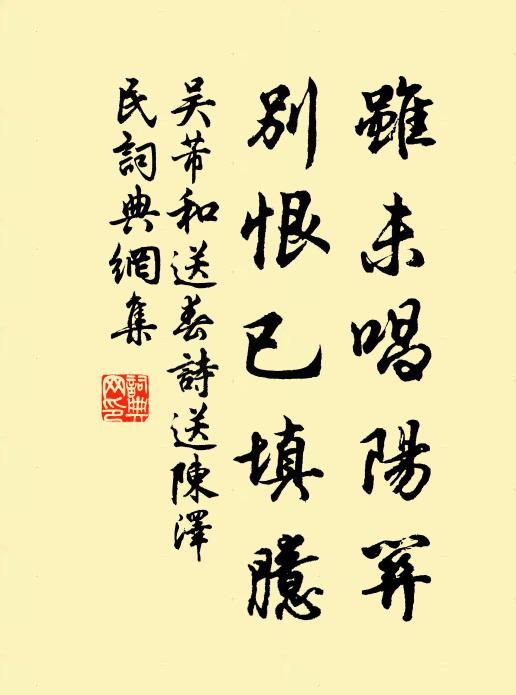 雖未唱陽関
別恨已填臆
吳芾和送春詩送陳澤
民詞典網集
詞典
网印